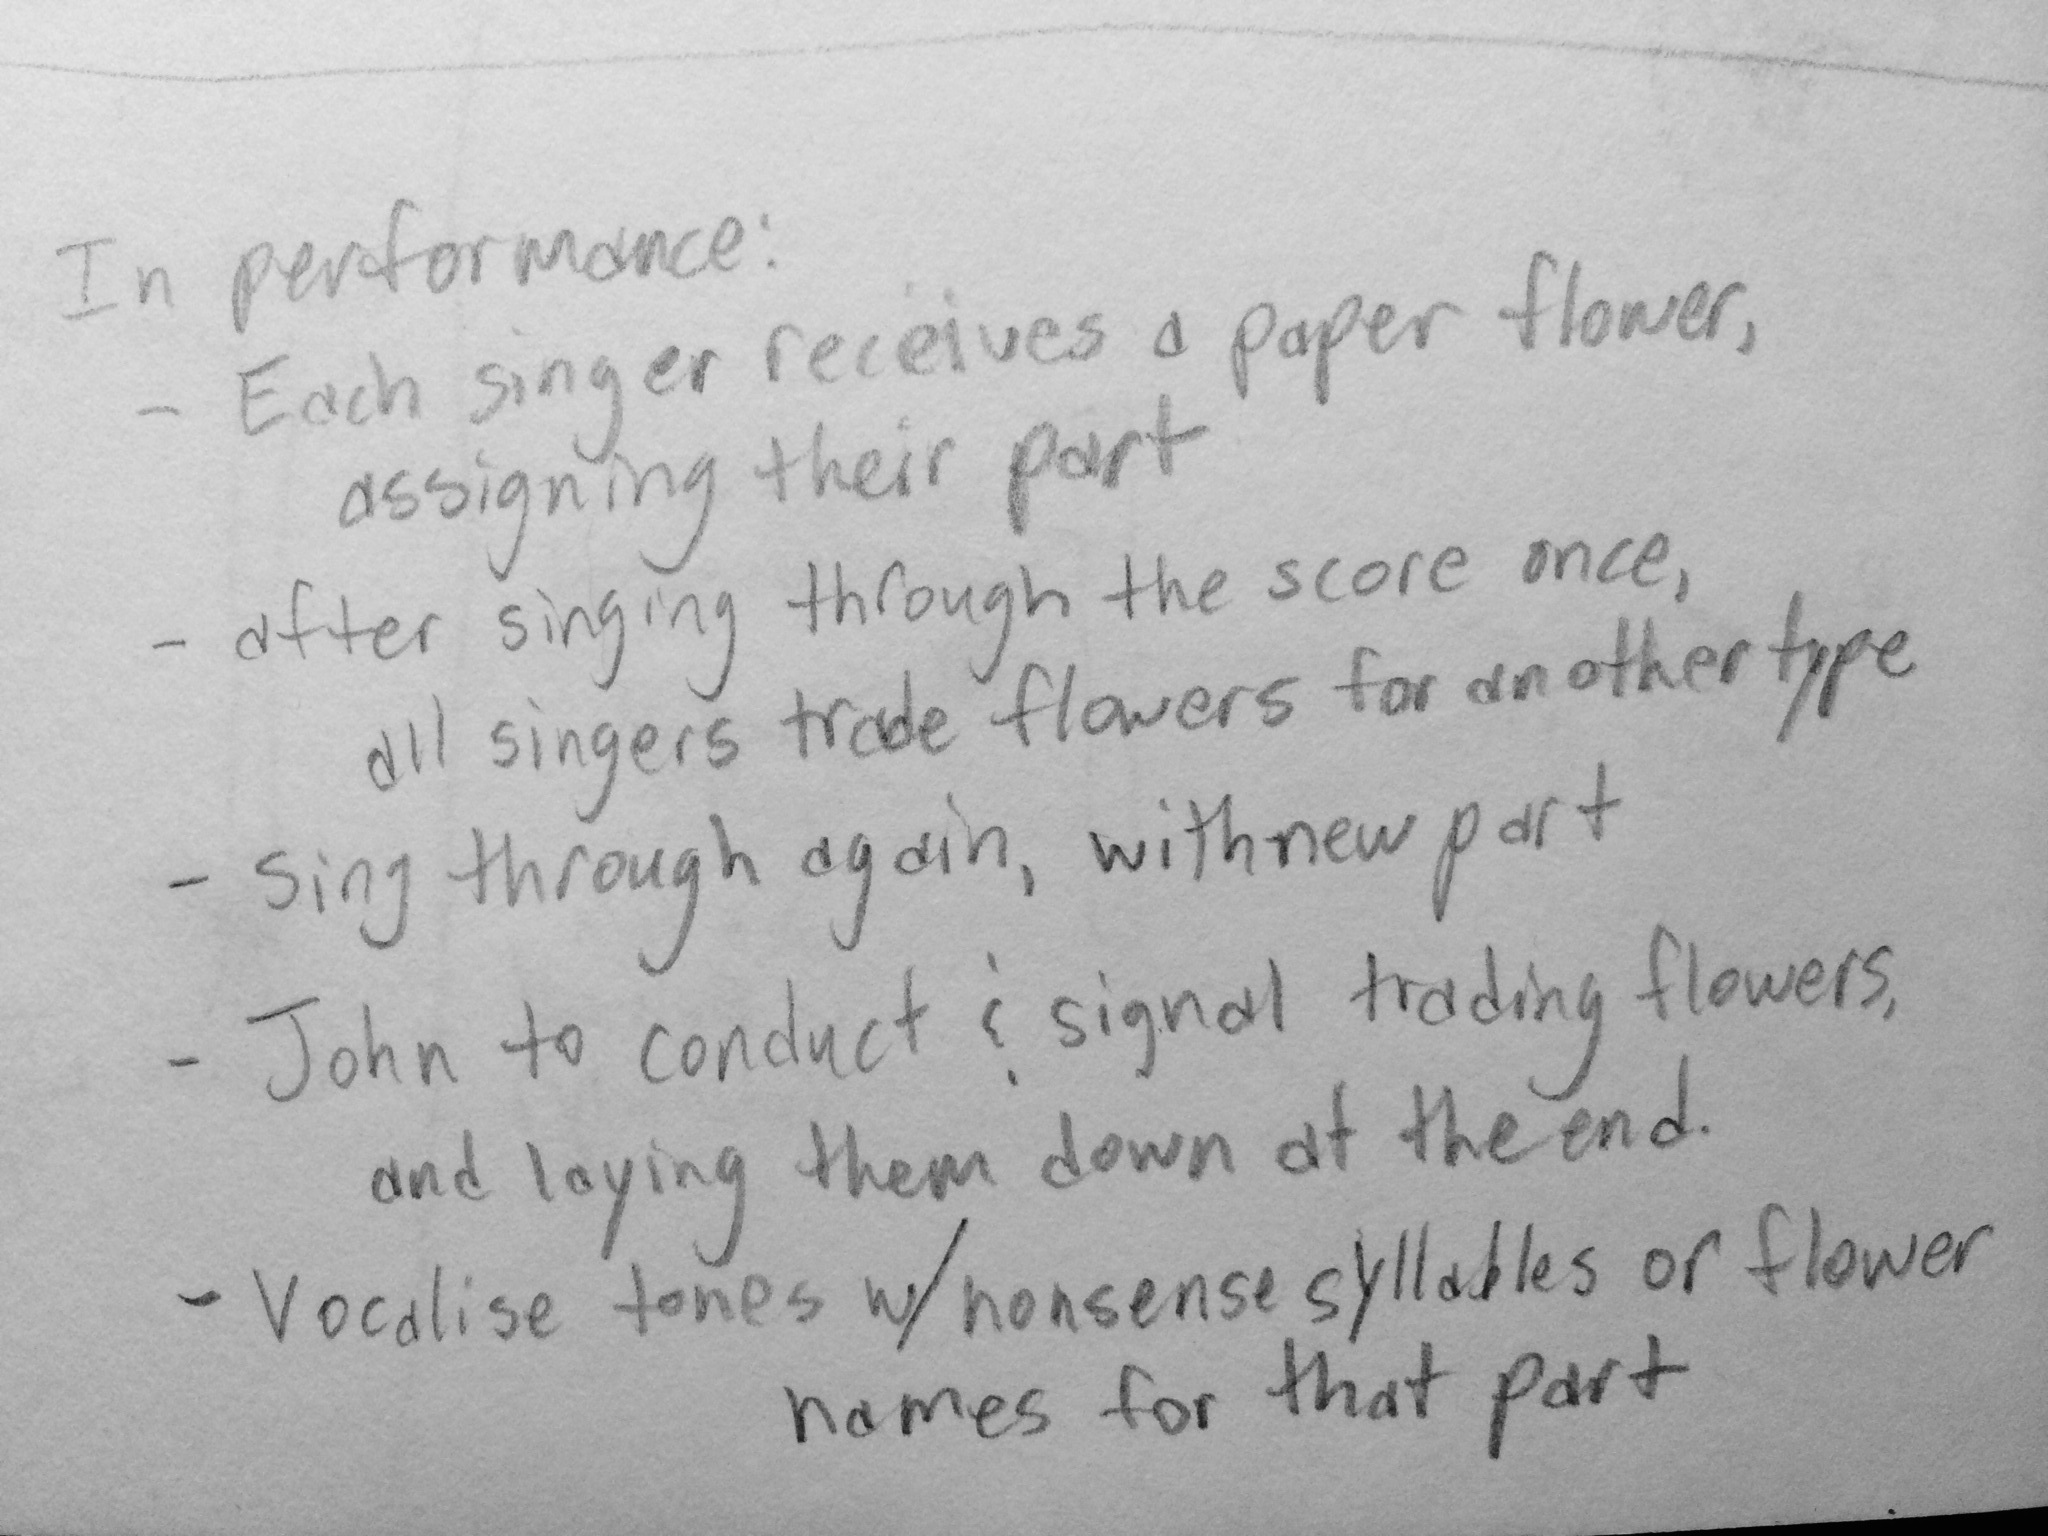 In performance:
- Each singer receives a paper flower,
assigning their part
- after singing through the score once,
all singers trade flowers for another type
- Sing through again, with new part
- John to conduct & signal trading flowers,
and laying them down at the end.
- Vocalise tones w/ nonsense syllables or flower
names for that part